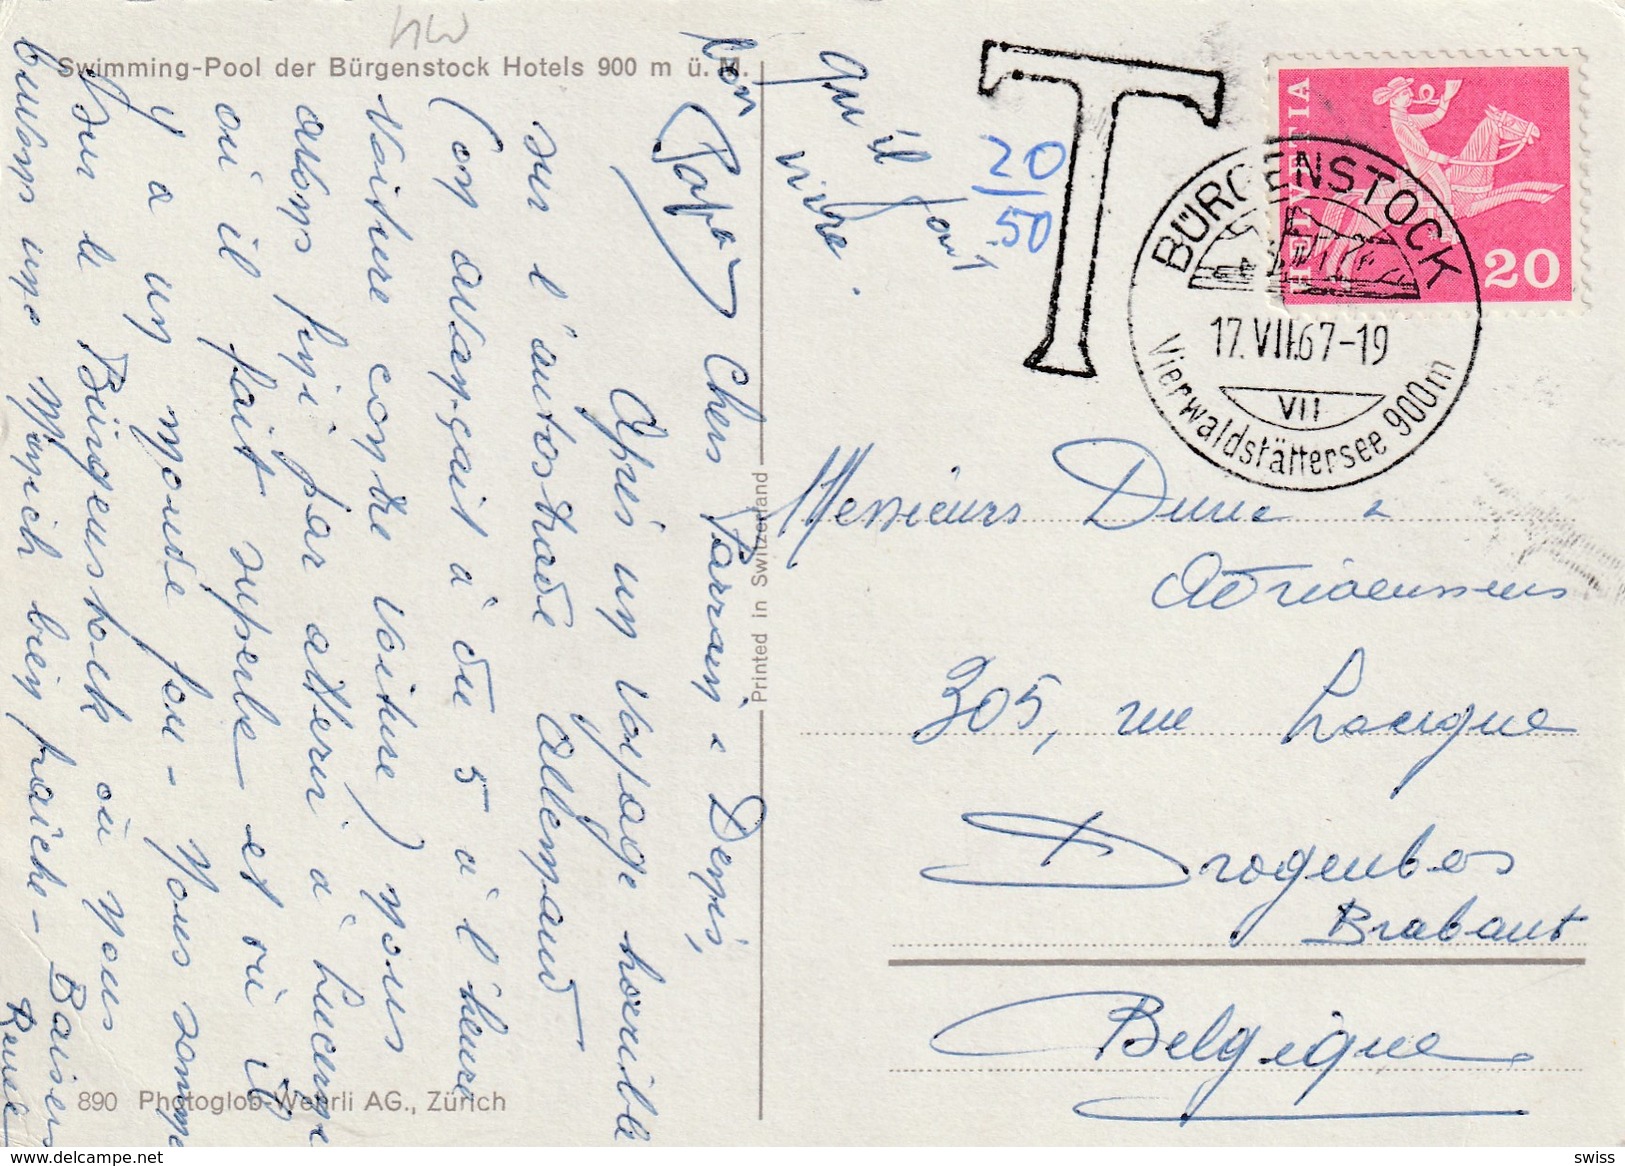 Swimming-Pool der Bürgenstock Hotels 900 m ü. M.
Chers Parrain & Denis,
Après un voyage horrible
sur l'autostrade allemand
(on avançait à du 5 à l'heure
voiture contre voiture) nous
avons fini par atterir à Lucerne
où il fait superbe et où il
y a un monde fou - Nous sommes
sur le Bürgenstock où nous
buvons une Münich bien fraîche - Baisers
Renée
bon
Papa
qu'il faut
vivre.
890 Photoglob-Wehrli AG., Zürich
Printed in Switzerland
T
20
50
HELVETIA
20
BÜRGENSTOCK
17.VII.67-19
VII
Vierwaldstättersee 900m
Messieurs Durue &
Adriaenssens
305, rue Lacigne
Drogenbos
Brabant
Belgique
www.delcampe.net
swiss